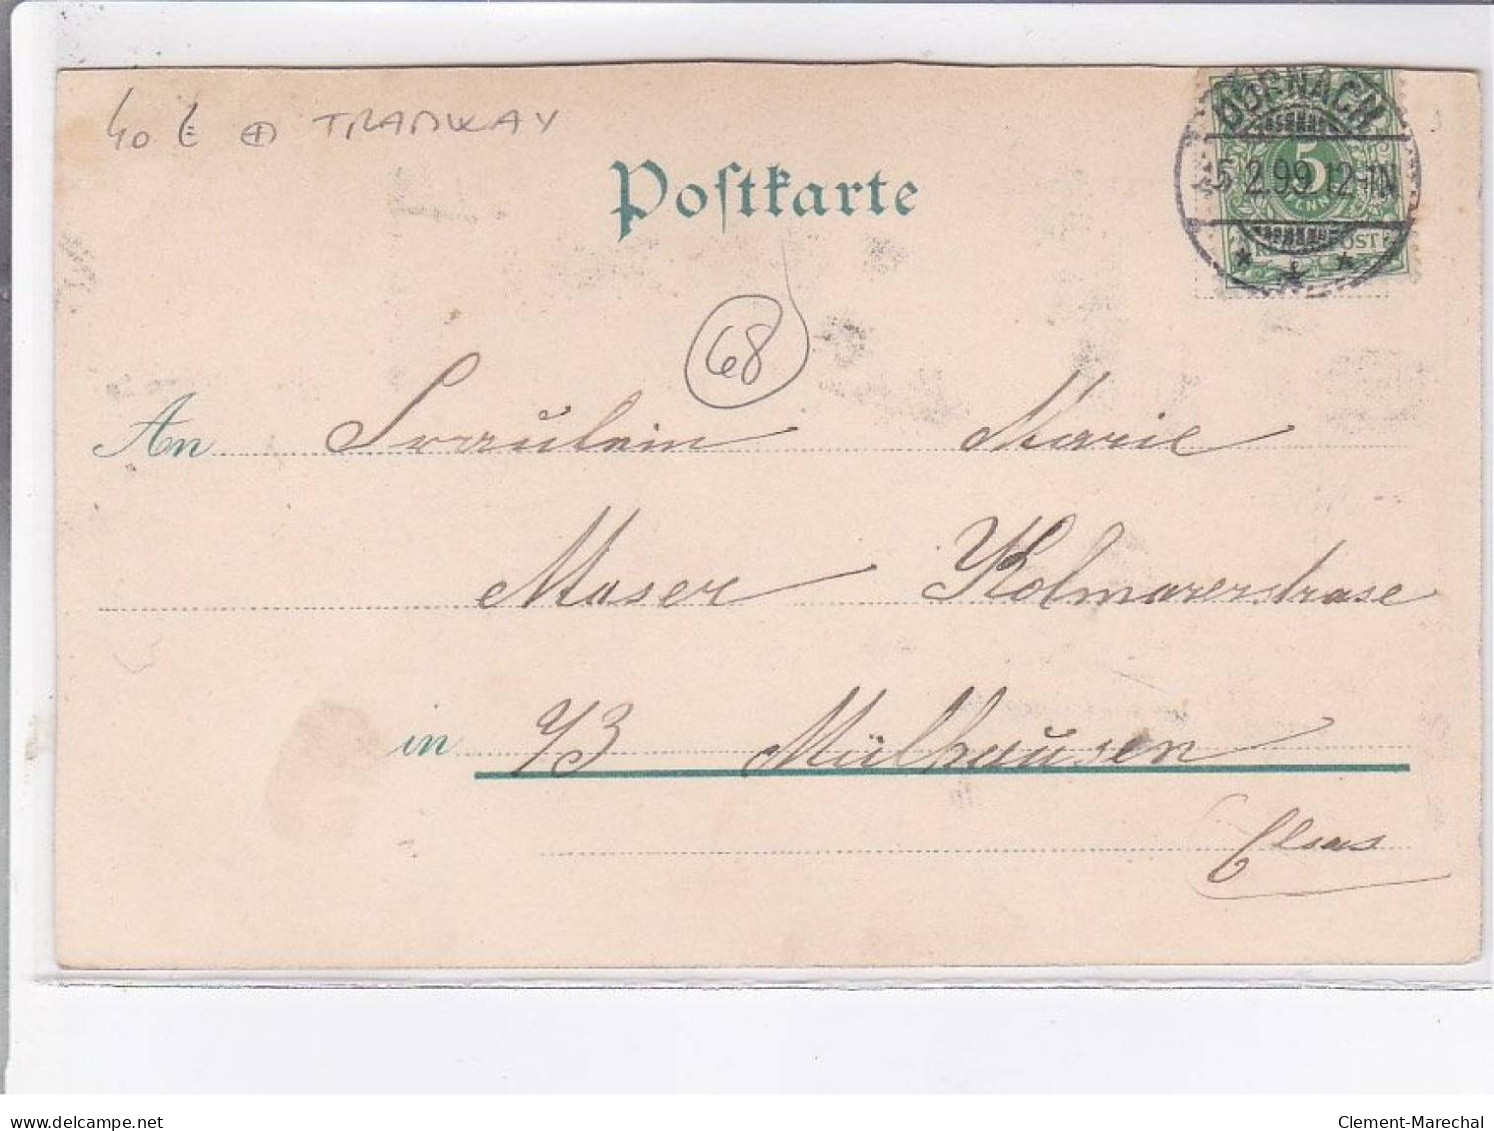 40 € ⊕ TRAMWAY
Postkarte
DORNACH
5.2.99.12-1N
5
POST
68
An Fräulein Marie
Moser Kolmarerstrase
in 93 Mülhausen
Elsas
delcampe.net
Clement-Marechal